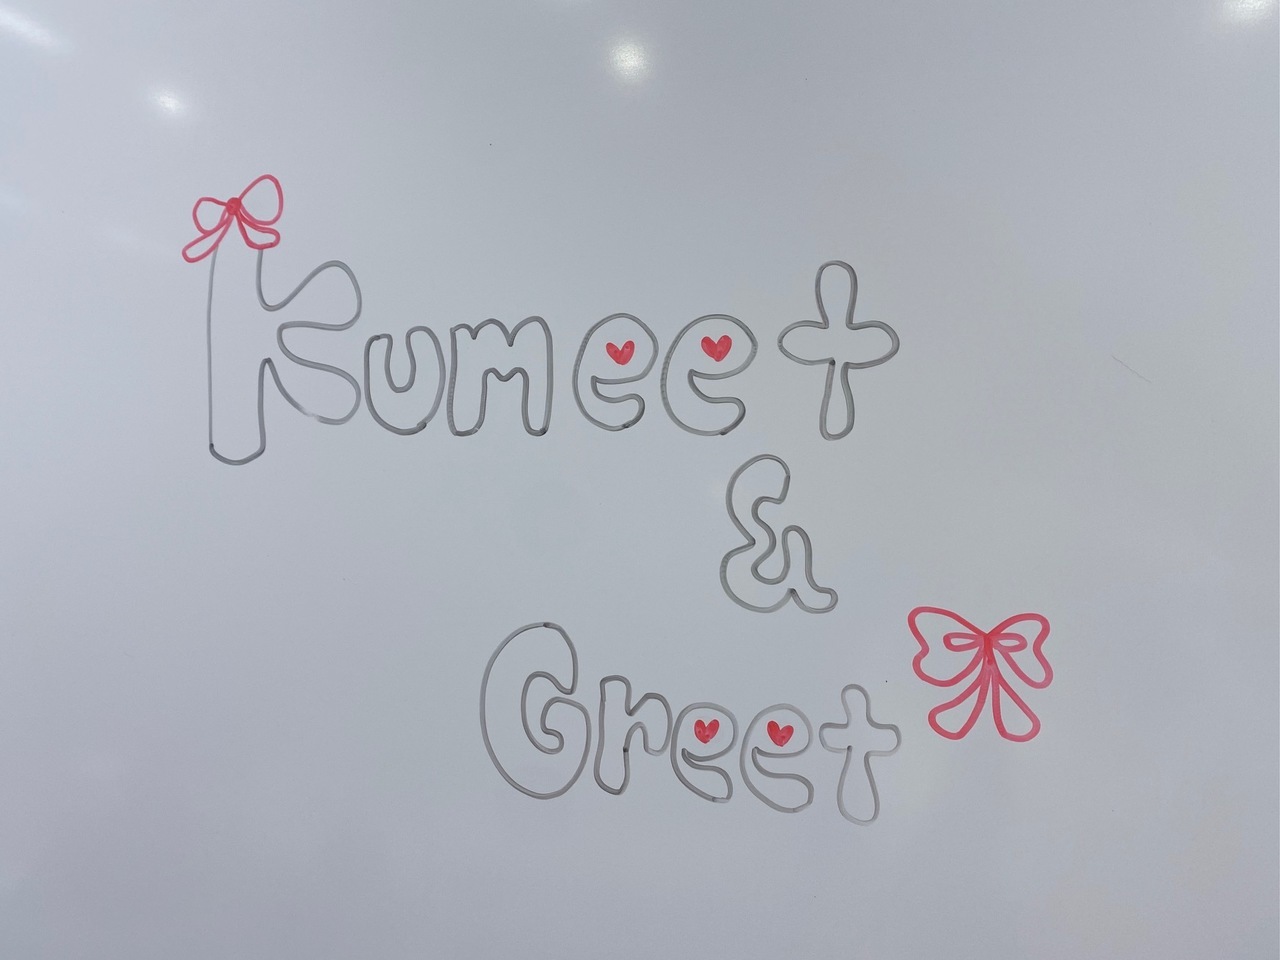 Kumeet
&
Greet